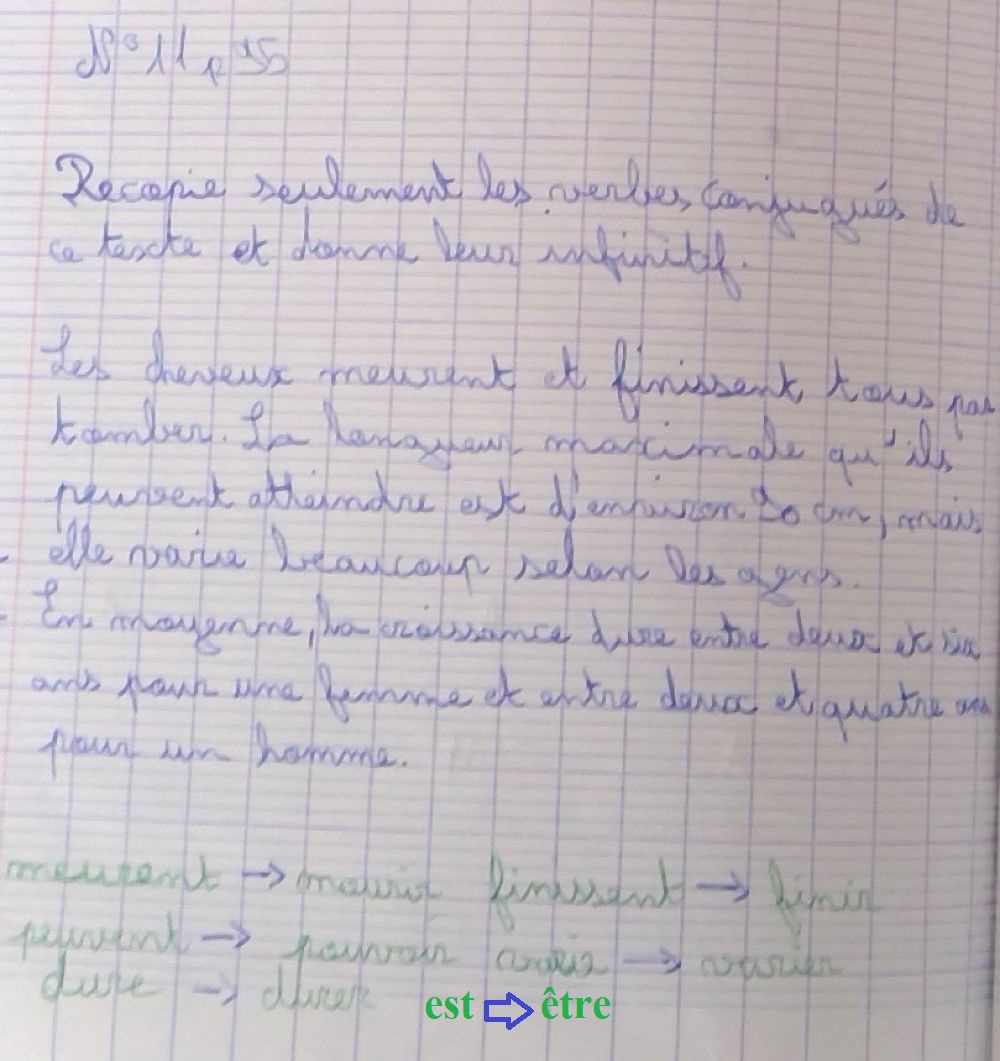 N° 11 p 35
Recopie seulement les verbes conjugués de
ce texte et donne leur infinitif.
Les cheveux meurent et finissent tous par
tomber. La longueur maximale qu'ils
peuvent atteindre est d'environ cm, mais
elle varie beaucoup selon les gens.
En moyenne, la croissance dure entre deux et six
ans pour une femme et entre deux et quatre ans
pour un homme.
meurent → mourir finissent → finir
peuvent → pouvoir varie → varier
dure → durer
est ⇨ être